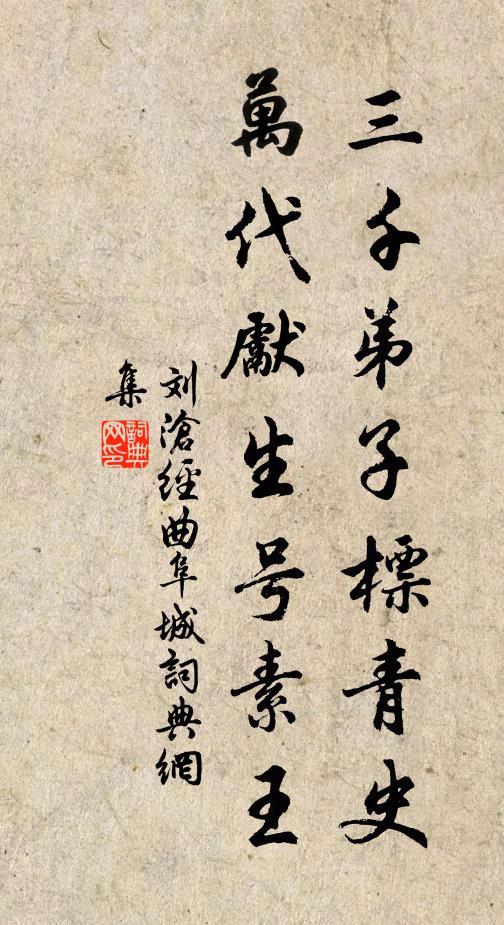 三千弟子標青史
萬代獻生号素王
刘滄經曲阜城詞典網
集
詞典
网印